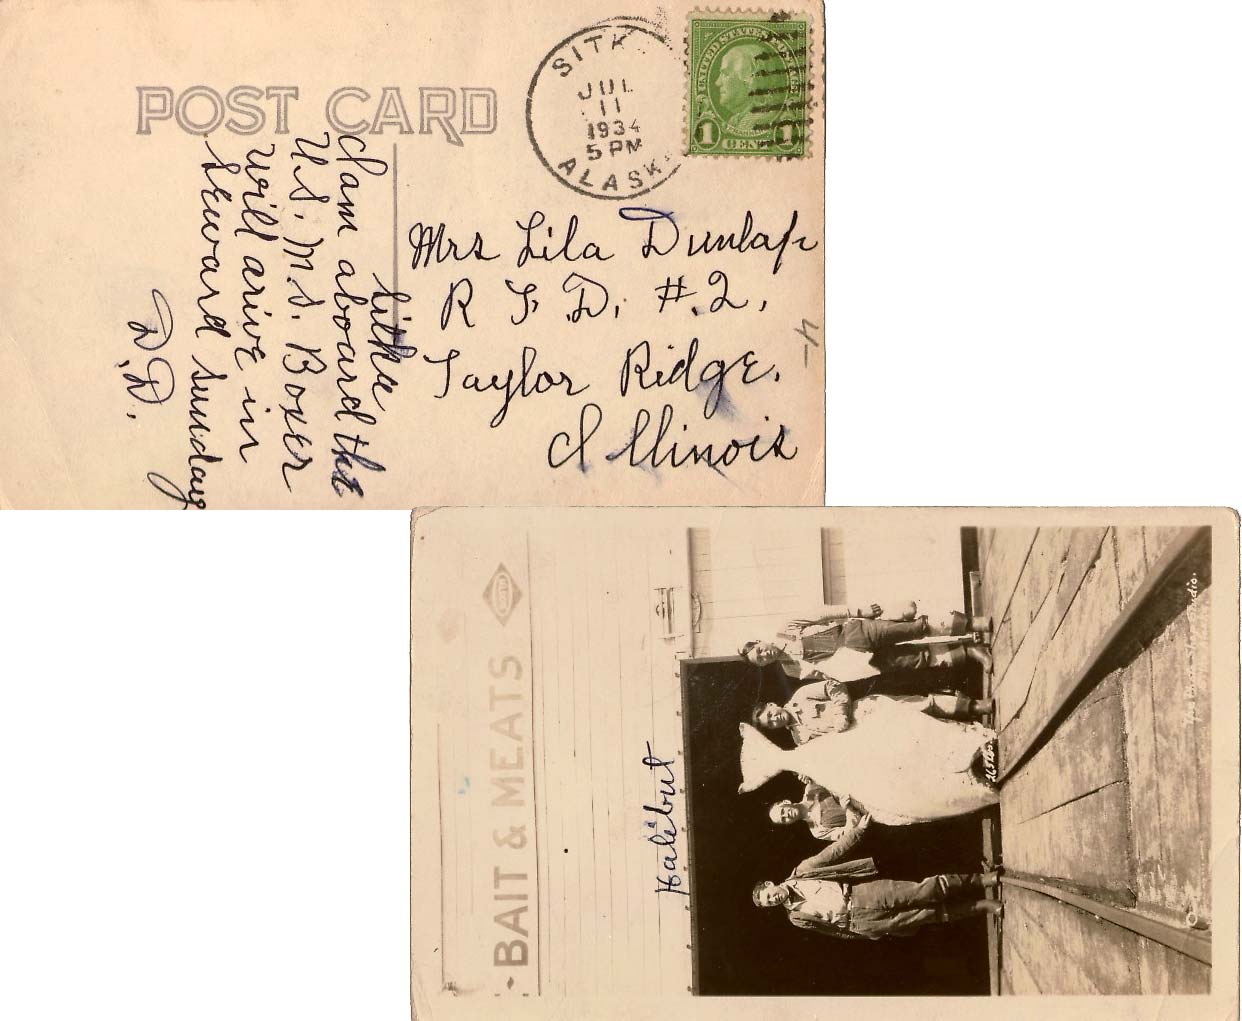 POST CARD
SITK
JUL
11
1934
5 PM
ALASK
UNITED STATES POSTAGE
1 CENT 1
Sitka
I am aboard the
U.S. M.S. Boxer
will arive in
Seward Sunday
D.D.
Mrs Lila Dunlap
R F. D. #.2,
Taylor Ridge,
Illinois
4-
BAIT & MEATS
Halibut